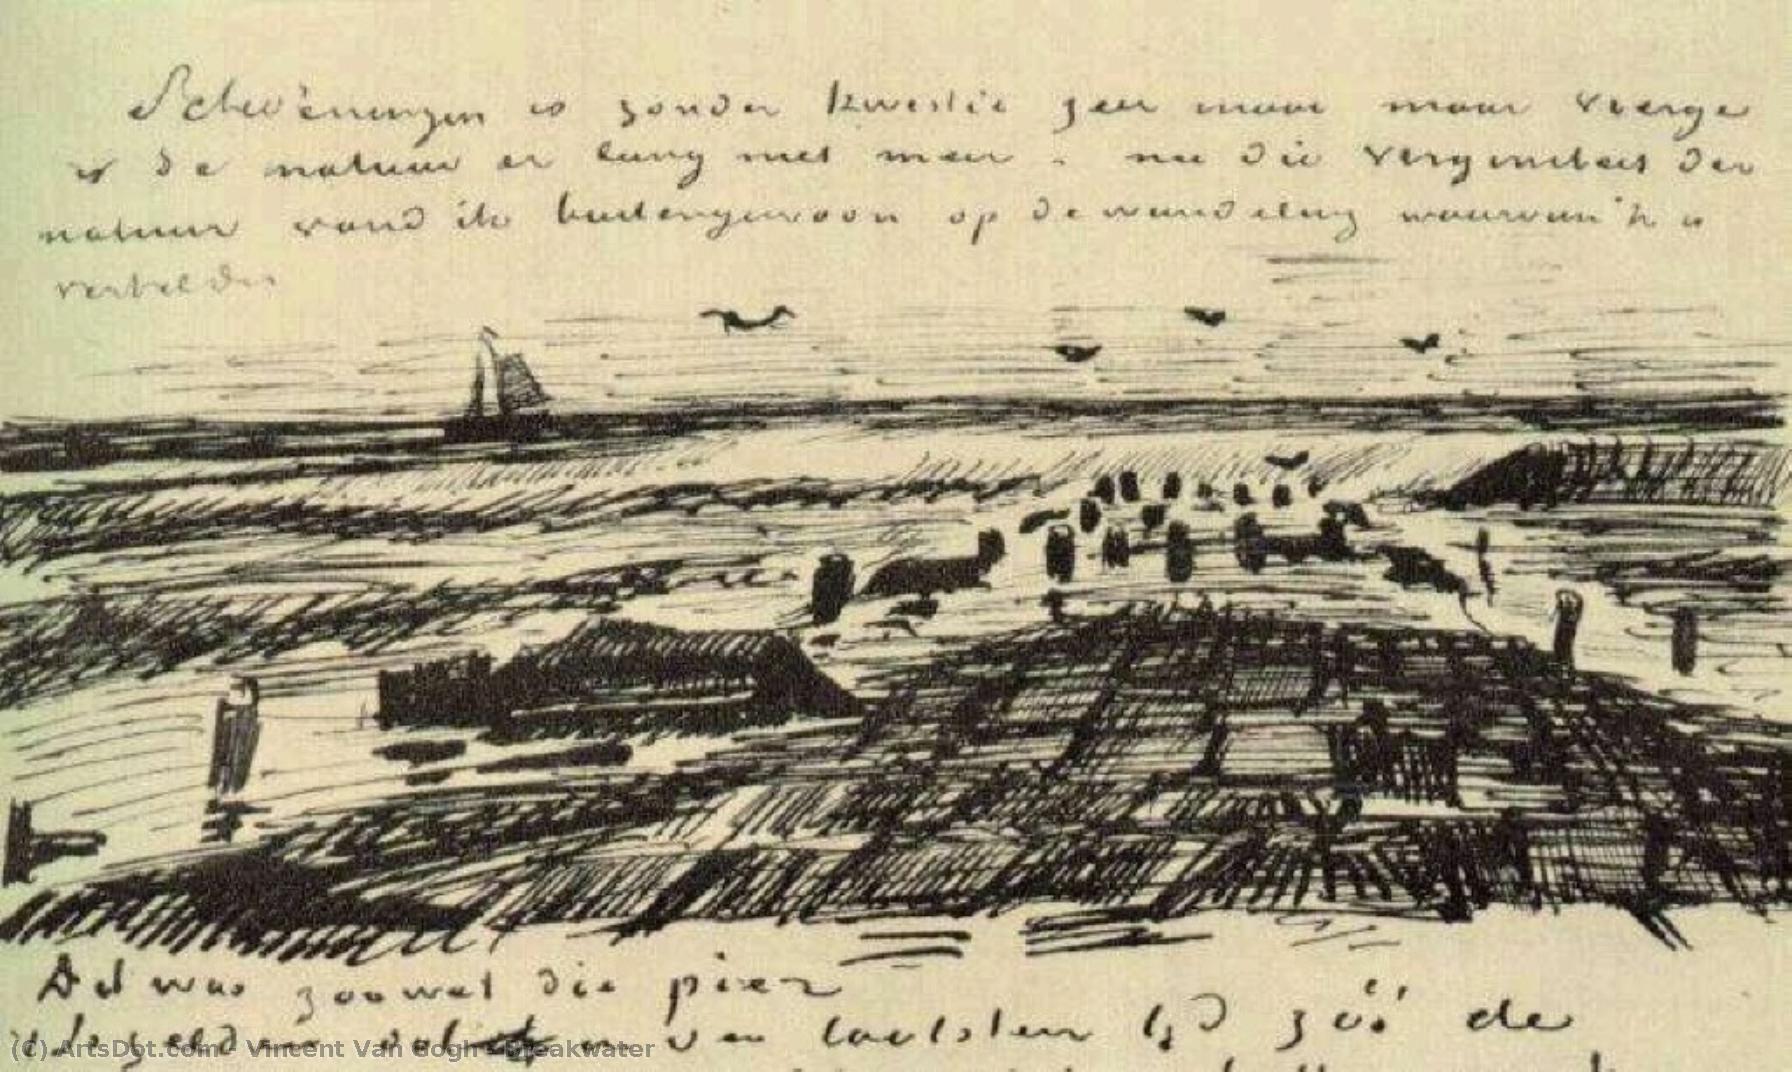 Scheveningen is zonder kwestie zeer mooi maar vierge
is de natuur er lang niet meer. nu die vergineteit der
natuur vond ik buitengewoon op de wandeling waarvan 'k u
vertelde.
Dit was zoowat die pier
van laatsten tijd zóó de
(C) ArtsDot.com - Vincent Van Gogh - Breakwater